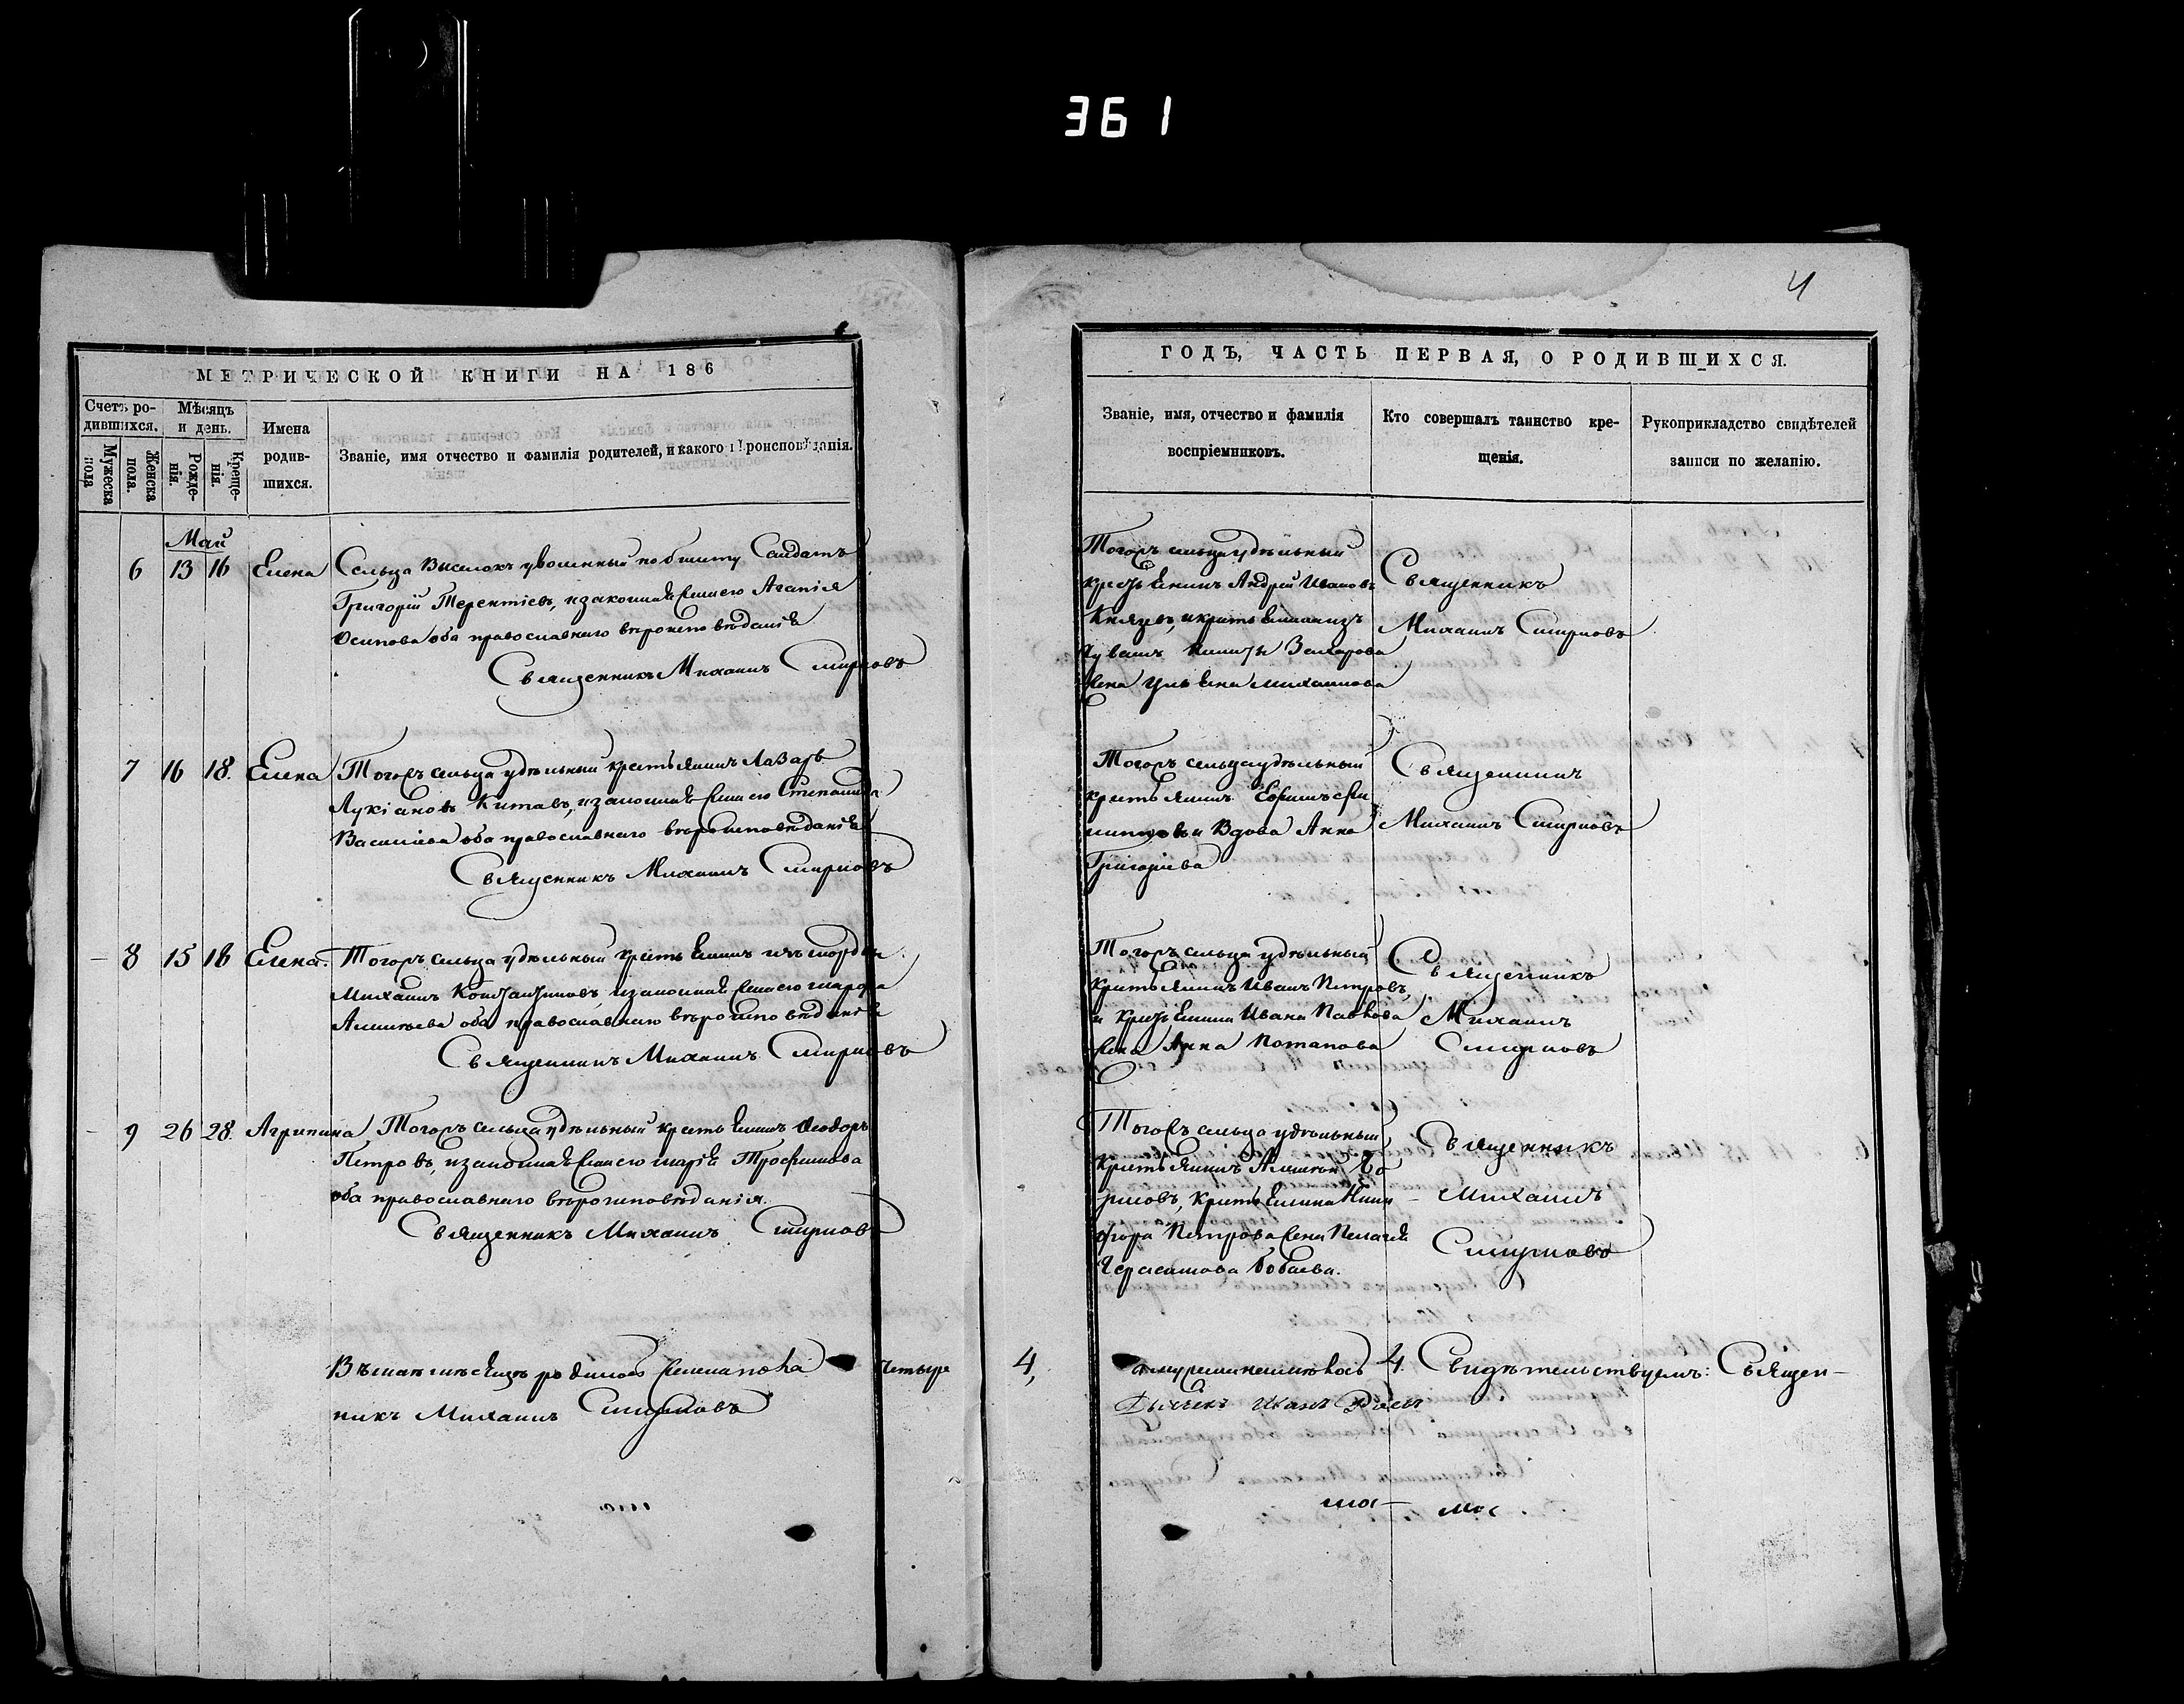 361
4
МЕТРИЧЕСКОЙ КНИГИ НА 186
Счетъ родившихся.
Мѣсяцъ и день.
Имена родившихся.
Званіе, имя отчество и фамилія родителей, и какого вѣроисповѣданія.
Мужеска пола
Женска пола.
Рожденія.
Крещенія.
Май
6 13 16 Елена Сельца Выселокъ уволенный Салдатъ
Григорій Терентіевъ, и законная жена его Агапія
Осипова оба православнаго вѣроисповѣданія
Священникъ Михаилъ Смирновъ
7 16 18. Елена Тогожъ сельца удѣльный крестьянинъ Лазарь
Лукіановъ Китаевъ, и законная жена его Степанида
Васильева оба православнаго вѣроисповѣданія
Священникъ Михаилъ Смирновъ
8 15 18 Елена. Тогожъ сельца удѣльный крестьянинъ изъ мордвы
Михаилъ Константиновъ, и законная жена его Марфа
Алексѣева оба православнаго вѣроисповѣданія
Священникъ Михаилъ Смирновъ
9 26 28. Агрипина Тогожъ сельца удѣльный крестьянинъ Ѳеодоръ
Петровъ, и законная жена его Марія Трофимова
оба православнаго вѣроисповѣданія.
Священникъ Михаилъ Смирновъ
Въ маѣ мѣсяцѣ родилось женска пола четыре
никъ Михаилъ Смирновъ
ГОДЪ, ЧАСТЬ ПЕРВАЯ, О РОДИВШИХСЯ.
Званіе, имя, отчество и фамилія
воспріемниковъ.
Кто совершалъ таинство крещенія.
Рукоприкладство свидѣтелей
записи по желанію.
Тогожъ сельца удѣльный
крестьянинъ Андрей Ивановъ
Князевъ, и крестьянина изъ
чувашъ Никиты Захарова
жена Ульяна Михаилова
Священникъ
Михаилъ Смирновъ
Тогожъ сельца удѣльный
крестьянинъ Ефимъ Филиповъ и Вдова Анна
Григорьева
Священникъ
Михаилъ Смирновъ
Тогожъ сельца удѣльный
крестьянинъ Иванъ Петровъ,
и крестьянина Ивана Павлова
жена Анна Потапова
Священникъ
Михаилъ
Смирновъ
Тогожъ сельца удѣльный
крестьянинъ Алексѣй Борисовъ, крестьянина Никифора Петрова жена Пелагія
Герасимова Бобаева.
Священникъ
Михаилъ
Смирновъ
4, а мужеска не имѣлось 4. Свидѣтельствуемъ: Священ-
Дьячекъ Иванъ